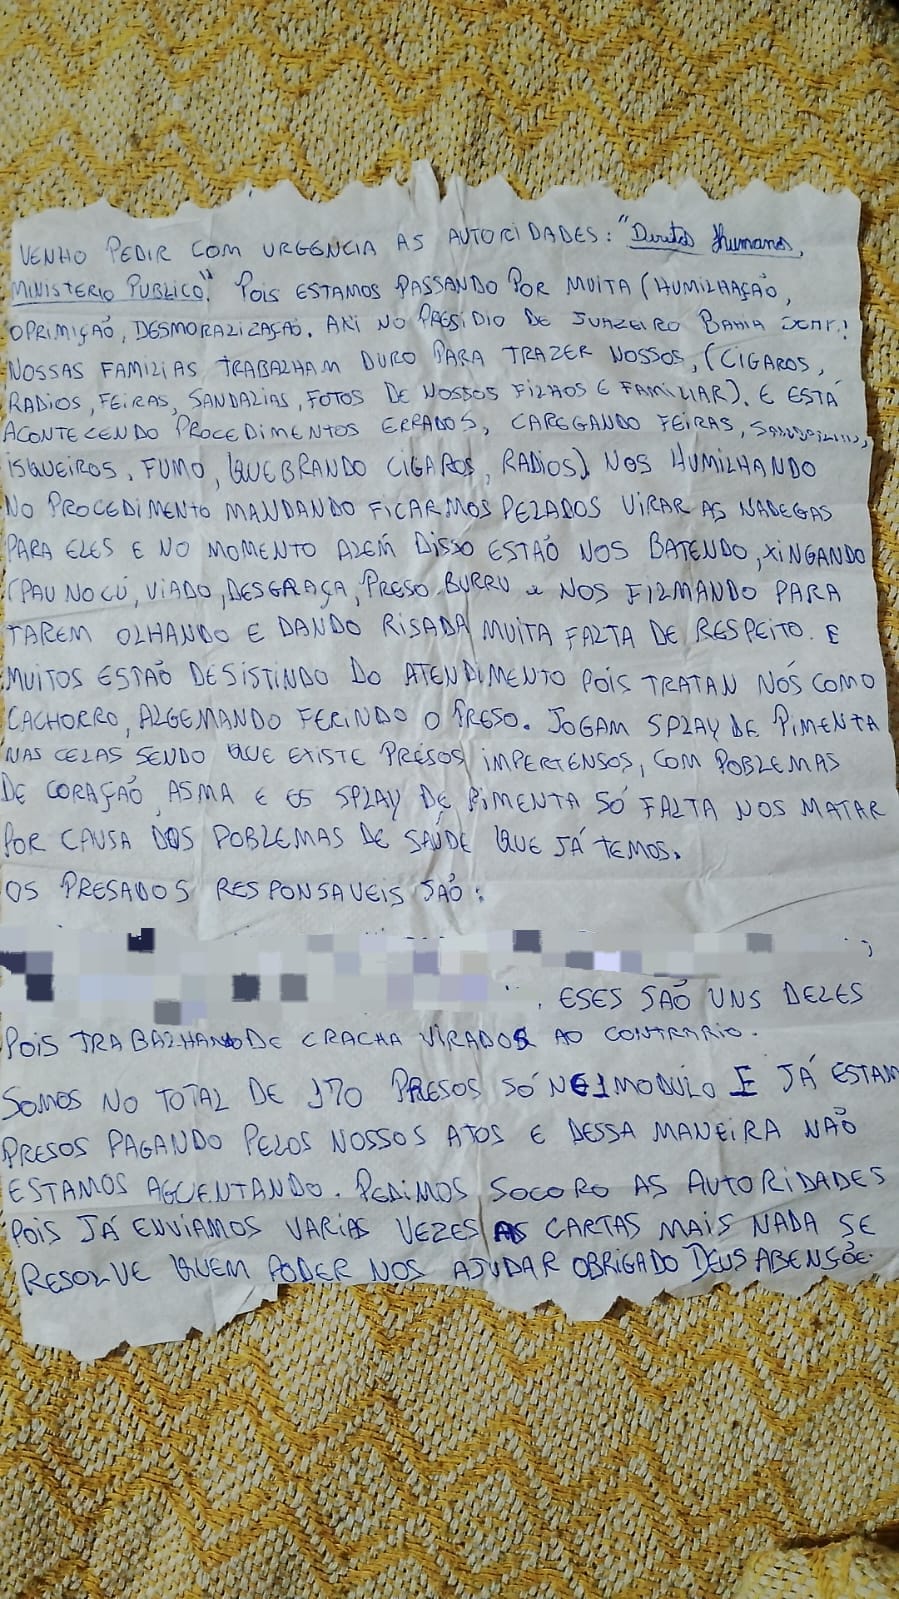 VENHO PEDIR COM URGÊNCIA AS AUTORIDADES: "Direitos Humanos,
MINISTERIO PUBLICO". POIS ESTAMOS PASSANDO POR MUITA (HUMILHAÇÃO,
OPRIMIÇÃO, DESMORALIZAÇÃO. AKI NO PRESIDIO DE JUAZEIRO BAHIA
NOSSAS FAMILIAS TRABALHAM DURO PARA TRAZER NOSSOS, (CIGAROS,
RADIOS, FEIRAS, SANDALIAS, FOTOS DE NOSSOS FILHOS E FAMILIAR). E ESTÁ
ACONTECENDO PROCEDIMENTOS ERRADOS, CAREGANDO FEIRAS,
ISQUEIROS, FUMO, (QUEBRANDO CIGAROS, RADIOS) NOS HUMILHANDO
NO PROCEDIMENTO MANDANDO FICARMOS PELADOS VIRAR AS NADEGAS
PARA ELES E NO MOMENTO ALÉM DISSO ESTÃO NOS BATENDO, XINGANDO
(PAU NO CÚ, VIADO, DESGRAÇA, PRESO BURRO e NOS FILMANDO PARA
TAREM OLHANDO E DANDO RISADA MUITA FALTA DE RESPEITO. E
MUITOS ESTÃO DESISTINDO DO ATENDIMENTO POIS TRATAN NÓS COMO
CACHORRO, ALGEMANDO FERINDO O PRESO. JOGAM SPLAY DE PIMENTA
NAS CELAS SENDO QUE EXISTE PRESOS IMPERTENSOS, COM POBLEMAS
DE CORAÇÃO, ASMA E OS SPLAY DE PIMENTA SÓ FALTA NOS MATAR
POR CAUSA DOS POBLEMAS DE SAÚDE QUE JÁ TEMOS.
OS PRESADOS RESPONSAVEIS SAÕ:
. ESES SAÕ UNS DELES
POIS TRABALHANDO DE CRACHA VIRADOS AO CONTRARIO.
SOMOS NO TOTAL DE 170 PRESOS SÓ NE1 MODULO E JÁ ESTAM
PRESOS PAGANDO PELOS NOSSOS ATOS E DESSA MANEIRA NÃO
ESTAMOS AGUENTANDO. PEDIMOS SOCORO AS AUTORIDADES
POIS JÁ ENVIAMOS VARIAS VEZES AS CARTAS MAIS NADA SE
RESOLVE QUEM PODER NOS AJUDAR OBRIGADO DEUS ABENSÕE.